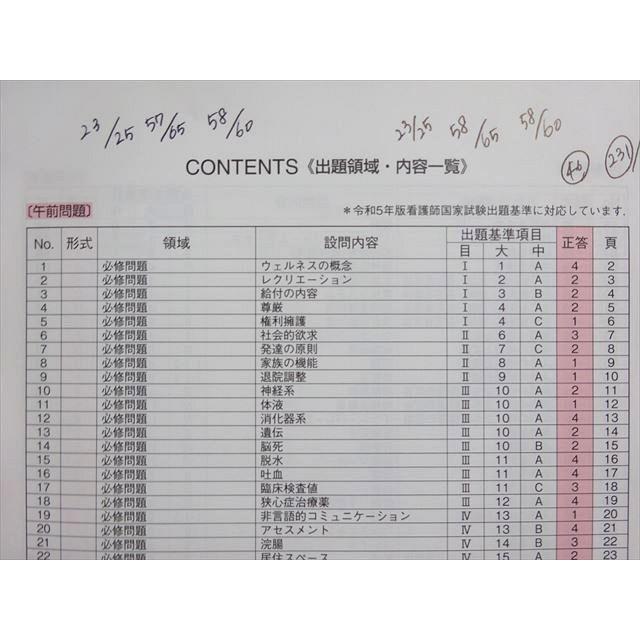 23/25 57/65 58/60 23/25 58/65 58/60
CONTENTS《出題領域・内容一覧》 46 231/
〔午前問題〕 *令和5年版看護師国家試験出題基準に対応しています.
No. 形式 領域 設問内容 出題基準項目 正答 頁
目 大 中
1 必修問題 ウェルネスの概念 Ⅰ 1 A 4 2
2 必修問題 レクリエーション Ⅰ 2 A 2 3
3 必修問題 給付の内容 Ⅰ 3 B 2 4
4 必修問題 尊厳 Ⅰ 4 A 2 5
5 必修問題 権利擁護 Ⅰ 4 C 1 6
6 必修問題 社会的欲求 Ⅱ 6 A 3 7
7 必修問題 発達の原則 Ⅱ 7 C 2 8
8 必修問題 家族の機能 Ⅱ 8 A 1 9
9 必修問題 退院調整 Ⅱ 9 A 1 10
10 必修問題 神経系 Ⅲ 10 A 2 11
11 必修問題 体液 Ⅲ 10 A 1 12
12 必修問題 消化器系 Ⅲ 10 A 4 13
13 必修問題 遺伝 Ⅲ 10 A 2 14
14 必修問題 脳死 Ⅲ 10 B 2 15
15 必修問題 脱水 Ⅲ 11 A 4 16
16 必修問題 吐血 Ⅲ 11 A 4 17
17 必修問題 臨床検査値 Ⅲ 11 C 3 18
18 必修問題 狭心症治療薬 Ⅲ 12 A 4 19
19 必修問題 非言語的コミュニケーション Ⅳ 13 A 1 20
20 必修問題 アセスメント Ⅳ 13 B 4 21
21 必修問題 浣腸 Ⅳ 14 B 3 22
22 必修問題 居住スペース Ⅳ 15 A 2 23